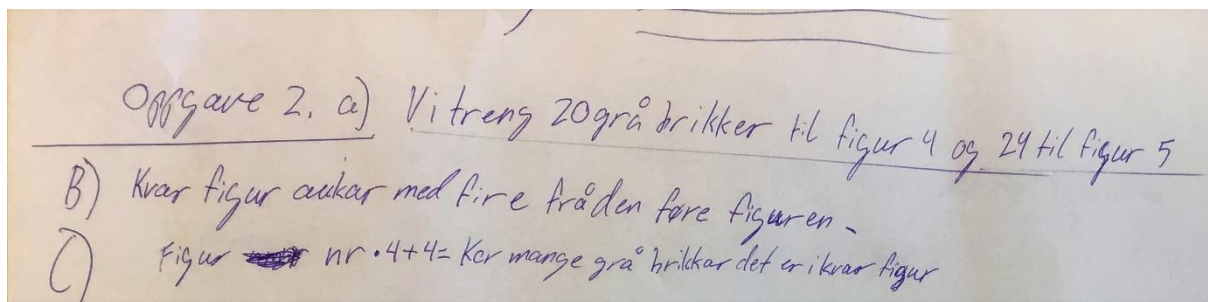 Oppgave 2. a) Vi treng 20 grå brikker til figur 4 og 24 til figur 5
B) Kvar figur aukar med fire frå den føre figuren.
C) Figur nr · 4 + 4 = Kor mange grå brikkar det er i kvar figur